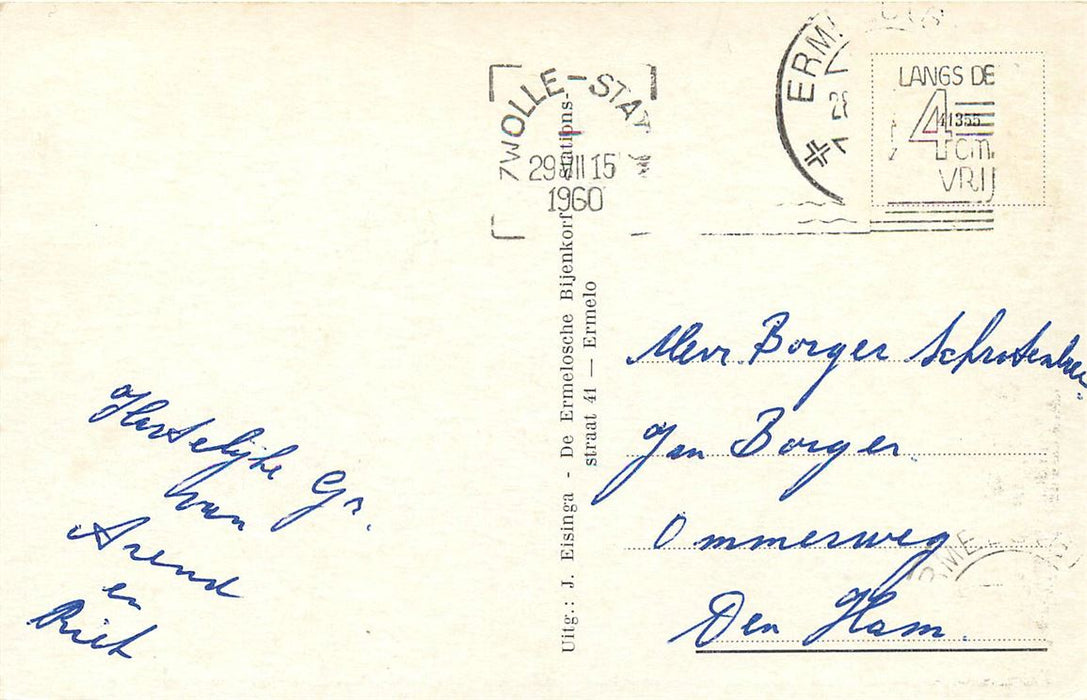 Hartelijke Gr.
van
Arend
en
Riet
ZWOLLE-STA
29 VII 15
1960
Uitg.: J. Eisinga - De Ermelosche Bijenkorf stations-
straat 41 — Ermelo
ERM
LANGS DE
4
41355
cm.
VRIJ
Mevr Borger
Jan Borger
Ommerweg
Den Ham.